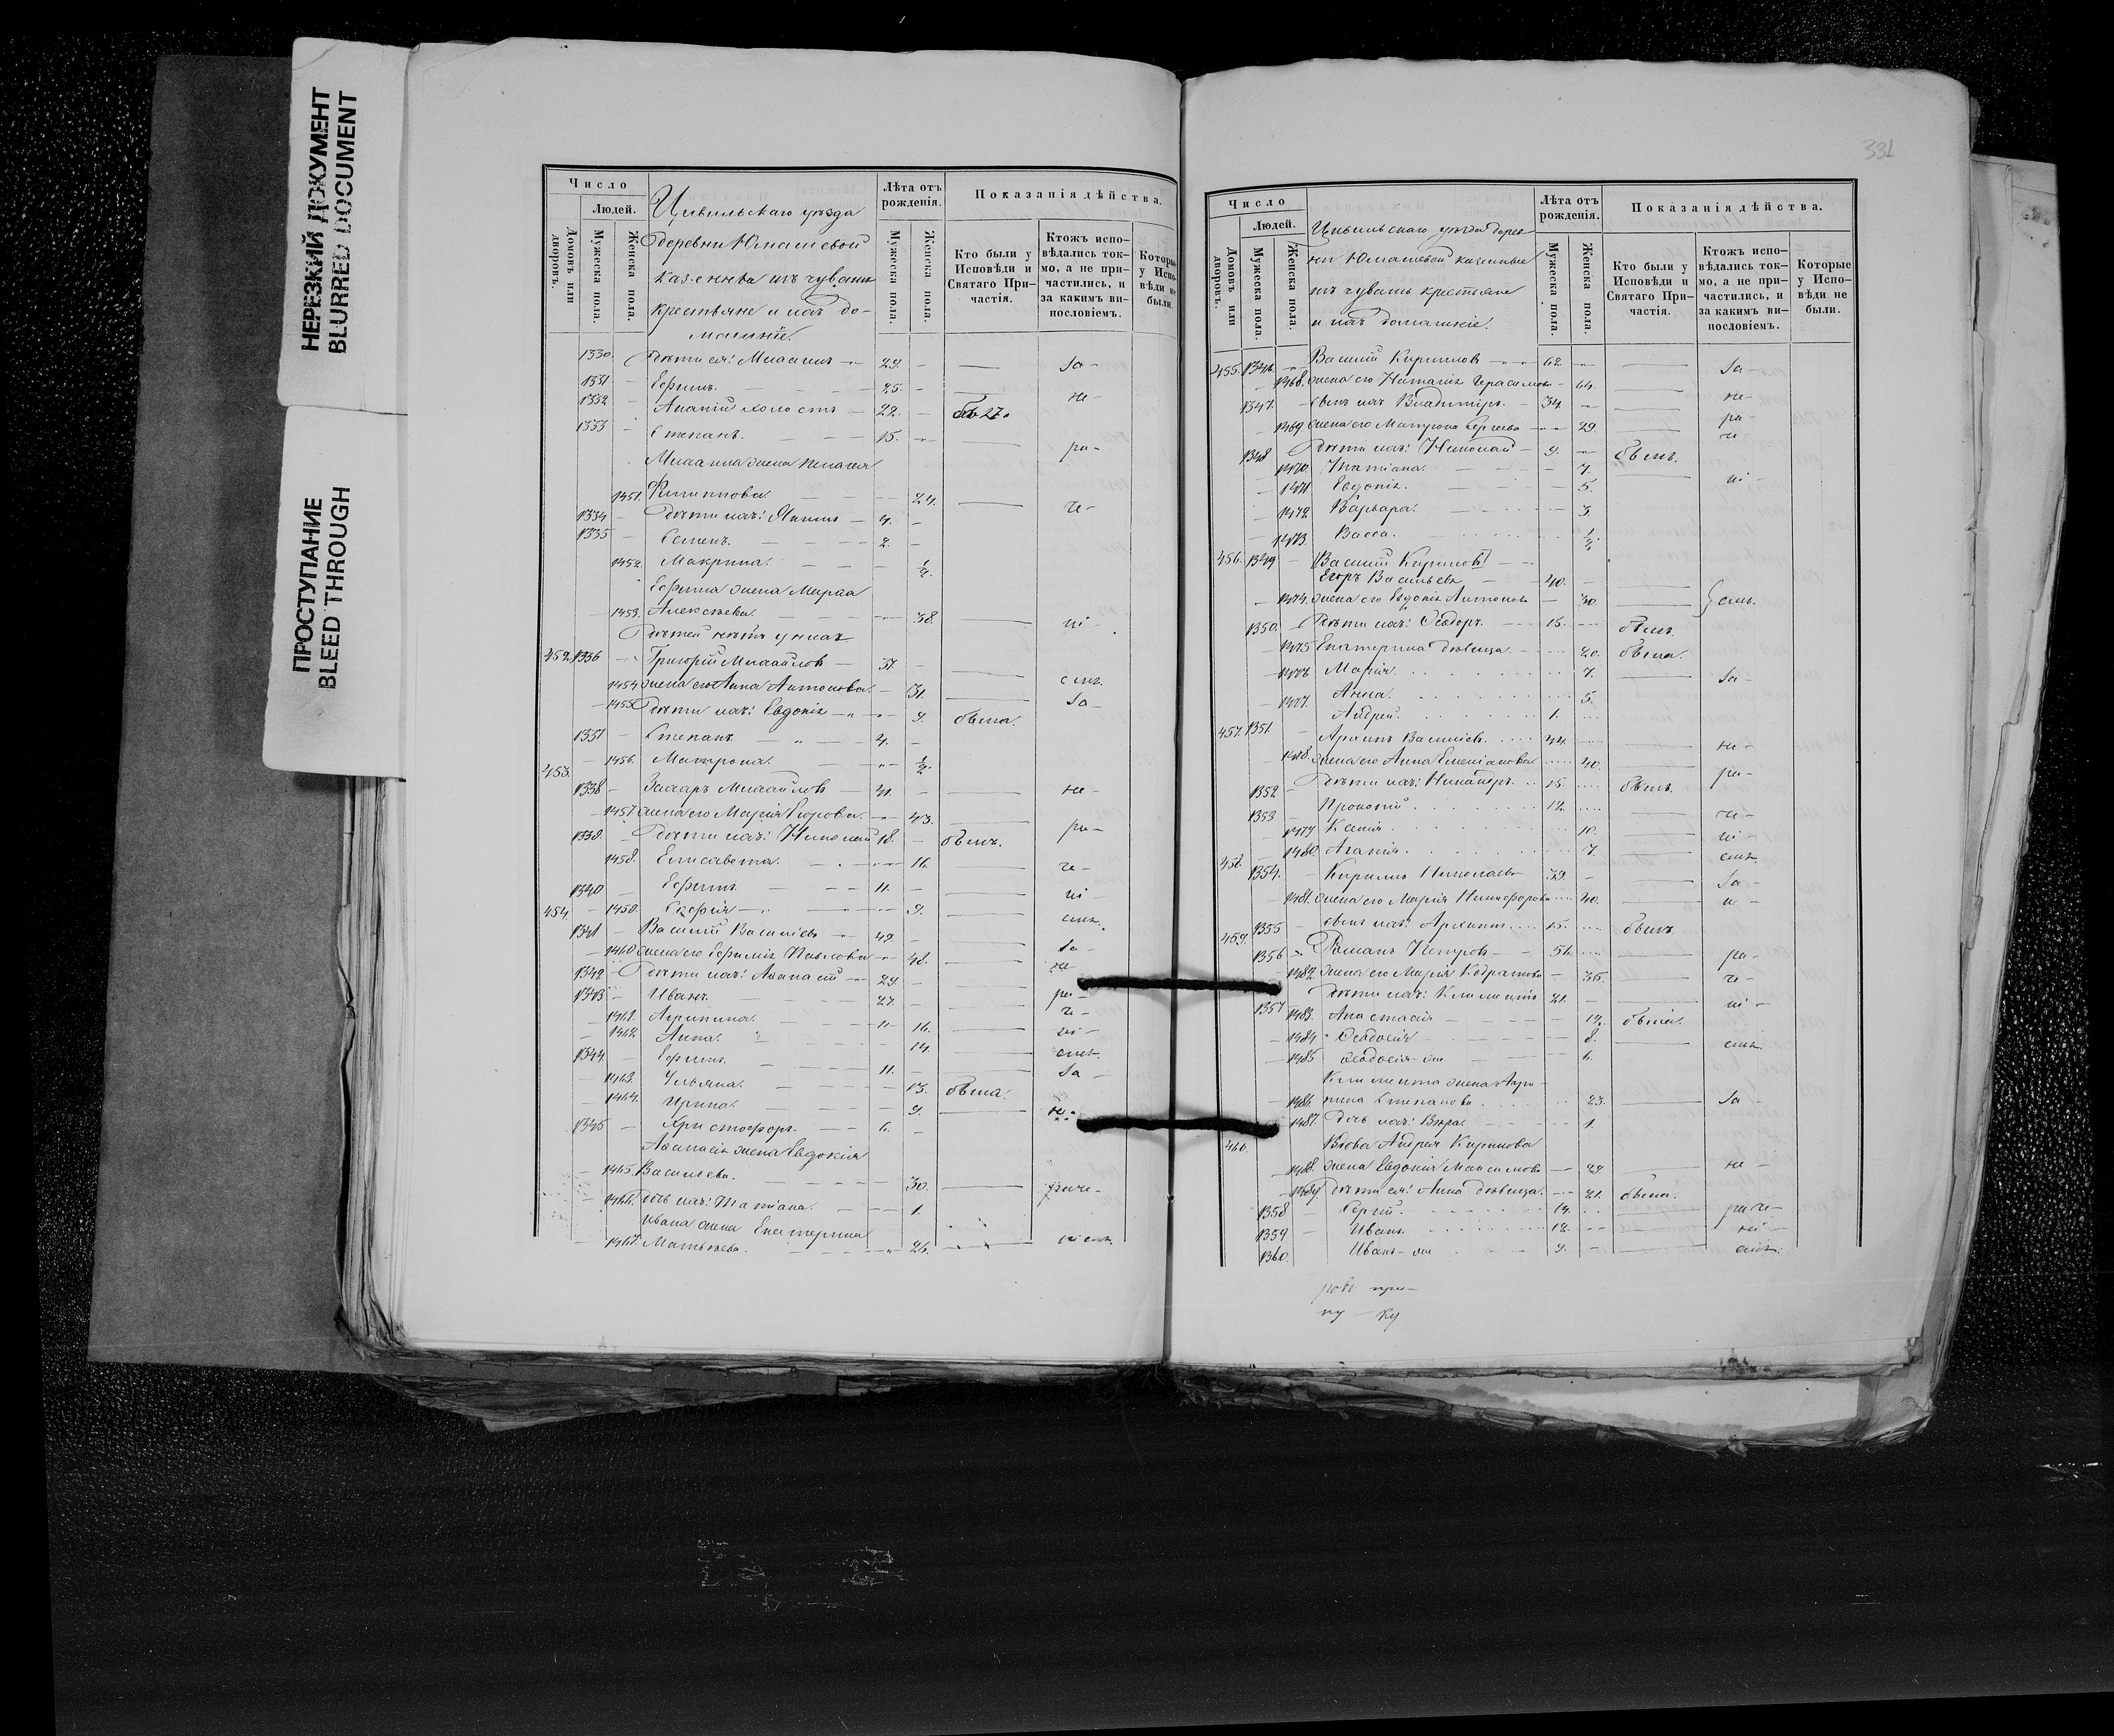 НЕРЕЗКИЙ ДОКУМЕНТ
BLURRED DOCUMENT
ПРОСТУПАНИЕ
BLEED THROUGH
Число
Людей.
Домовъ или дворовъ.
Мужеска пола.
Женска пола.
Цивильскаго уѣзда
деревни Юмашевой
казенные изъ чувашъ
крестьяне и ихъ до-
машніе.
Лѣта отъ рожденія.
Мужеска пола.
Женска пола.
Показанія дѣйства.
Кто были у Исповѣди и Святаго При-частія.
Ктожъ испо-вѣдались ток-мо, а не при-частились, и за какимъ ви-нословіемъ.
Которые у Испо-вѣди не были.
1330. дѣти ея: Михаилъ 29. За-
1331 Ефимъ. 25. не-
1332 Ананій холостъ 22.
1333 Степанъ. 15. ра-
Михаила жена Пелагея
1451. Филиппова. 24. че-
1334 дѣти ихъ: Якимъ 4.
1335 Семенъ. 2.
1452. Макрина. 1/2.
Ефима жена Марѳа
1453. Алексѣева. 38. ні-
Дѣтей нѣтъ у нихъ
452. 1336 Григорій Михайловъ 37.
1454 жена его Анна Антонова. 31. емъ.
1455 Дѣти ихъ: Евдокія 9. была. За-
1337 Степанъ 4.
1456. Матрона. 1/2.
453. 1338 Захаръ Михайловъ 41. не-
1457 жена его Марія Егорова. 43.
1339. дѣти ихъ: Николай 18. былъ. ра-
1458. Елисавета. 16. че-
1340 Ефимъ 11. ні-
1459. Софія 9. емъ.
454. 1341 Василій Васильевъ 49.
1460 жена его Ефимія Павлова 48. За-
1342 Дѣти ихъ: Аѳанасій 29. не
1343 Иванъ. 27. ра-
1461. Агрипина. 16. че-
1462. Анна. 14. ні-
1344 Ефимъ. 11. емъ.
1463. Ульяна. 13. была. За-
1464. Ирина. 9. не-
1345 Христофоръ 6.
Аѳанасія жена Евдокія
1465. Васильева. 30. раче-
1466. дочь ихъ: Татіана. 1.
Ивана жена Екатерина
1467. Матвѣева. 26. ніемъ.
331
Число
Людей.
Домовъ или дворовъ.
Мужеска пола.
Женска пола.
Цивильскаго уѣзда дерев
ни Юмашевой казенные
изъ чувашъ крестьяне
и ихъ домашніе.
Лѣта отъ рожденія.
Мужеска пола.
Женска пола.
Показанія дѣйства.
Кто были у Исповѣди и Святаго При-частія.
Ктожъ испо-вѣдались ток-мо, а не при-частились, и за какимъ ви-нословіемъ.
Которые у Испо-вѣди не были.
455. 1346. Василій Кириловъ 62. За-
1468. жена его Наталія Герасимова 64.
1347. сынъ ихъ Владиміръ. 34. не-
1469 жена его Матрона Сергеева 29. ра-
1348 Дѣти ихъ: Николай 9. былъ. че-
1470. Татіана. 7.
1471 Евдокія. 5. ні-
1472 Варвара. 3.
1473 Васса. 1/2.
456. 1349 Василій Кириловъ
Егоръ Васильевъ 40.
1474. жена его Евдокія Антонова 30. емъ.
1350. Дѣти ихъ: Ѳедоръ. 15. былъ.
1475 Екатерина дѣвица. 20. была.
1476 Марія. 7. За-
1477. Анна. 5.
Андрей. 1.
457. 1351. Архипъ Васильевъ. 44. не-
1478. жена его Анна Емеліанова 40.
1352 Дѣти ихъ: Никаноръ. 15. былъ. ра-
1353 Прокопій 12. че-
1479 Ксенія. 10. ні-
1480. Агапія. 7. емъ.
458. 1354. Кирилъ Николаевъ 39. За-
1481. жена его Марія Никифорова 40. н-
1355 сынъ ихъ: Архипъ. 15. былъ
459. 1356 Романъ Петровъ 51. ра-
1482. жена его Марія Кодратова 35. че-
1357 Дѣти ихъ: Климентъ 21. ні-
1483. Анастасія 12. была.
1484 Ѳеодосія 8. емъ.
1485 Ѳеодосія-же 6.
Климента жена Агри-
1486. пина Степанова. 23. За-
1487. Дочь ихъ: Вѣра. 1.
460. Вдова Андрея Кирилова
1488. жена Евдокія Максимова не-
1489 дѣти ея: Анна дѣвица. 21. была.
1358 Сергій. 14. раче-
1359 Иванъ. 12. ні-
1360. Иванъ-же 9. емъ.